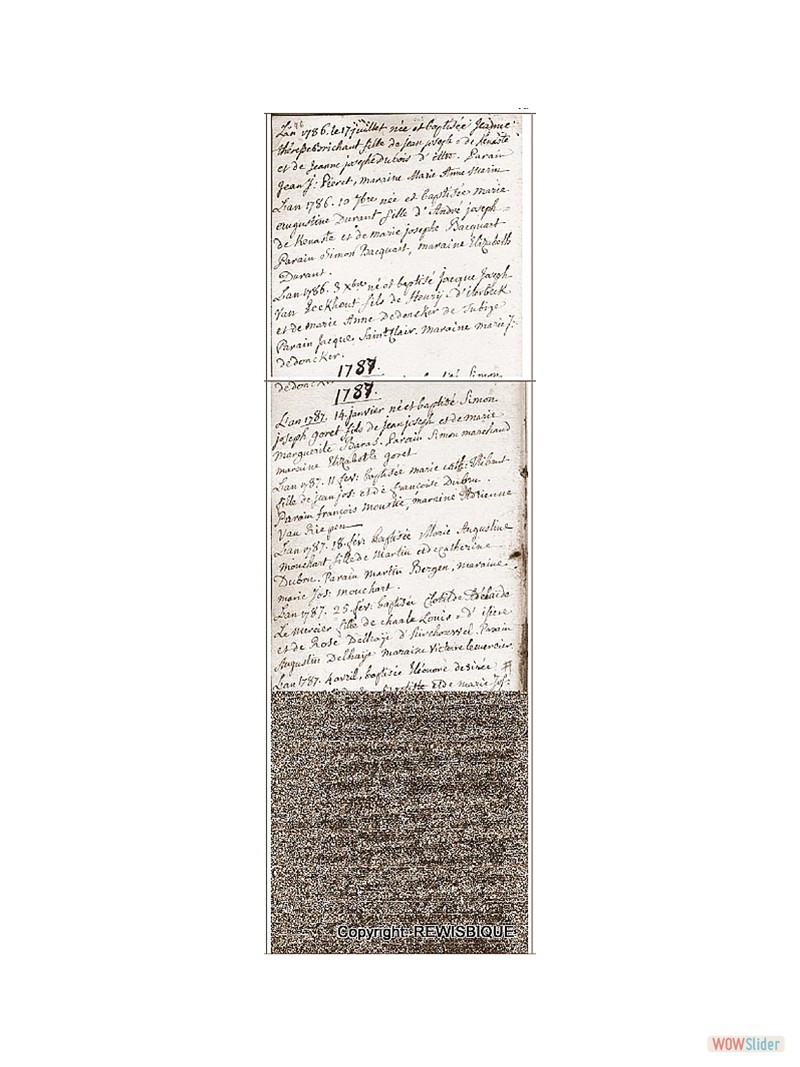 L'an 1786. le 17 juillet née et baptisée Jeanne
thérèse Brichant fille de jean joseph de Kenaste
et de Jeanne joseph Dubois d'ittre. Parain
Jean J: Pieret, maraine Marie Anne
L'an 1786. 10 7bre née et baptisée marie
augustine Durant fille d'André joseph
de Kenaste et de marie josephe Bacquart
Parain Simon Bacquart, maraine Elizabeth
Durant.
L'an 1786. 3 xbre né et baptisé jacque joseph
Van Eeckhout fils de Henry d'
et de marie Anne Dedoncker de Tubize
Parain jacque Saint Clair. maraine marie J:
dedoncker.
1787.
dedoncker
Simon
1787.
L'an 1787. 14 janvier né et baptisé Simon
joseph goret fils de jean joseph et de marie
marguerite Baras. Parain Simon marechand
maraine Elizabeth goret
L'an 1787. 11 fev: baptisée marie cath: Thibaut
fille de jean jos: et de françoise Dubru.
Parain françois mourlie, maraine Adrienne
Van Riepen
L'an 1787. 18 fev: baptisée Marie Augustine
mouchart fille de Martin et de Catherine
Dubru. Parain Martin Bergen, maraine
marie Jos: mouchart.
L'an 1787. 25 fev: baptisée Clotilde Adelaide
Le mercier fille de charle Louis d'isiere
et de Rose Delhaije d' Parain
Augustin Delhaije maraine Victoire lemercier
L'an 1787. 4 avril, baptisée Eléonore desirée
et de marie Jos:
Copyright: REWISBIQUE
WOWSlider